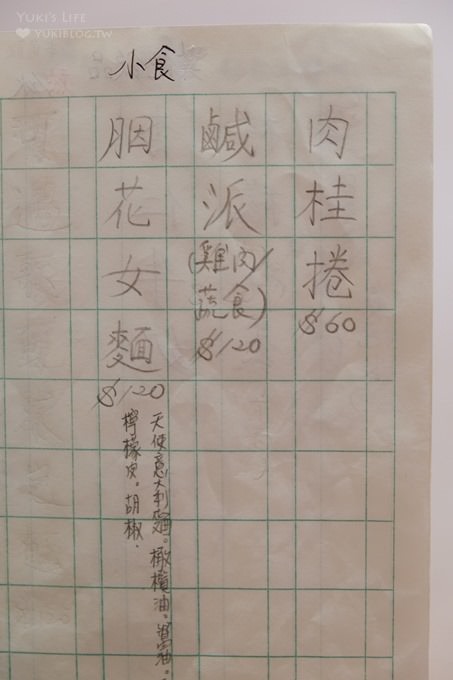 YUKI'S LIFE
YUKIBLOG.TW
小食
肉桂捲
$60
鹹派
(雞肉/
蔬食)
$120
胭花女麵
$120
天使意大利麵。橄欖油。醬油。
檸檬皮。胡椒.